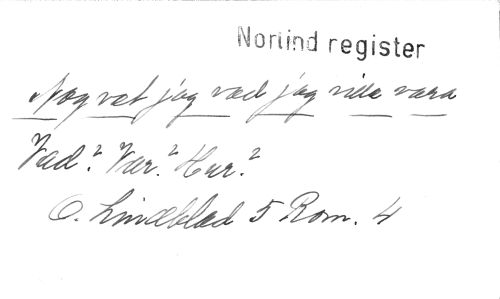 Norlind register
Nog vet jag vad jag vill vara
Vad? Var? Hur?
O. Lindblad 5 Rom. 4